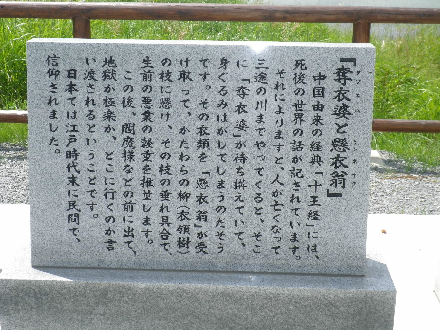 『奪衣婆と懸衣翁』
中国由来の経典「十王経」には、
死後の世界の話が記されています。
それによりますと、人が亡くなって
三途の川までやってくると、そこ
に「奪衣婆」が待ち構えていて、
身ぐるみはがしてしまうのだそう
です。その衣類を「懸衣翁」が受
け取って、かたわらの柳(衣領樹)
の枝に懸け、その枝の垂れ具合で、
生前の悪業の軽重を推量します。
この後、閻魔様などの前に出て、
地獄か極楽か、どこに行くのか言
い渡されるということです。
日本では江戸時代末に民間で、
信仰されました。